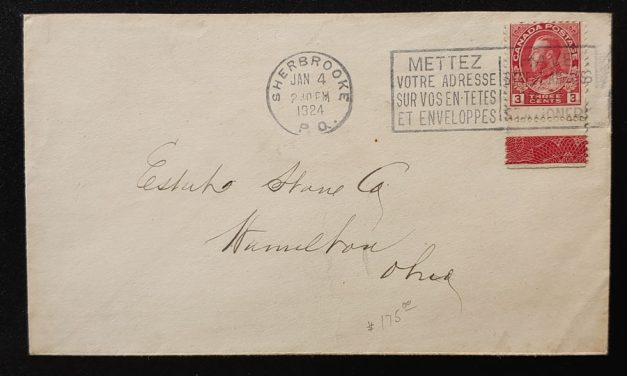 SHERBROOKE
JAN 4
2 30 PM
1924
P.Q.
METTEZ
VOTRE ADRESSE
SUR VOS EN-TETES
ET ENVELOPPES
CANADA POSTAGE
3 THREE 3
CENTS
Estate Stove Co
Hamilton
Ohio
# 175.00